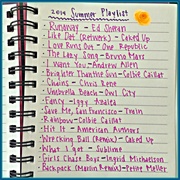 2014 Summer Playlist
- Runaway - Ed Sheeran
- Like Dat (Network) - Caked Up
- Love Runs Out - One Republic
- The Lazy Song - Bruno Mars
- I Want You - Andrew Allen
- Brighter Than the Sun - Colbie Caillat
- Chains - Chris Rene
- Umbrella Beach - Owl City
- Fancy - Iggy Azalea
- Save Me, San Francisco - Train
- Rainbow - Colbie Caillat
- Hit It - American Authors
- Wrecking Ball (Remix) - Caked Up
- What I Got - Sublime
- Girls Chase Boys - Ingrid Michaelson
- Backpack (Marin Remix) - Petite Meller